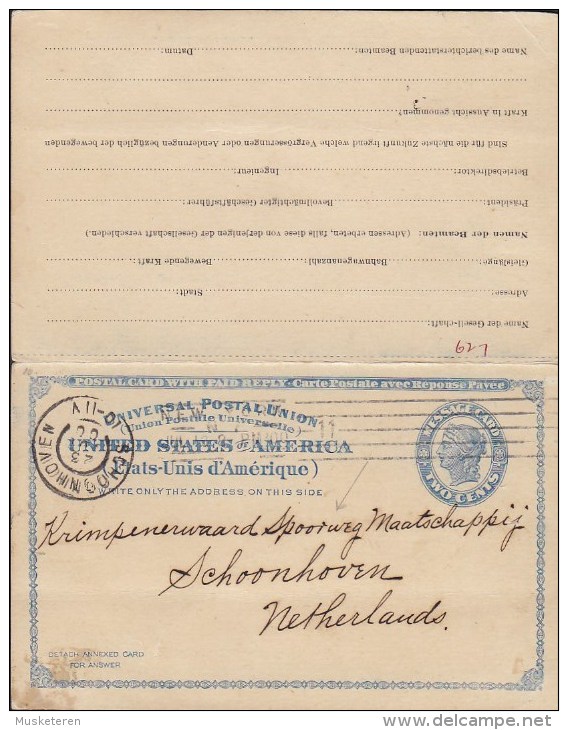 Name der Gesell-schaft:
Adresse: Stadt:
Gleislänge: Bahnwagenanzahl: Bewegende Kraft:
Namen der Beamten: (Adressen erbeten, falls diese von derjenigen der Gesellschaft verschieden.)
Präsident: Bevollmächtigter Geschäftsführer:
Betriebsdirektor: Ingenieur:
Sind für die nächste Zukunft irgend welche Vergrösserungen oder Aenderungen bezüglich der bewegenden
Kraft in Aussicht genommen?
Name des berichterstattenden Beamten: Datum:
627
POSTAL CARD WITH PAID REPLY - Carte Postale avec Réponse Payée
UNIVERSAL POSTAL UNION
(Union Postale Universelle)
UNITED STATES OF AMERICA
(Etats-Unis d'Amérique)
WRITE ONLY THE ADDRESS ON THIS SIDE
MESSAGE CARD
TWO CENTS
SCHOONHOVEN
NEW
Krimpenerwaard Spoorweg Maatschappij
Schoonhoven
Netherlands.
DETACH ANNEXED CARD
FOR ANSWER
Musketeren
delcampe.net